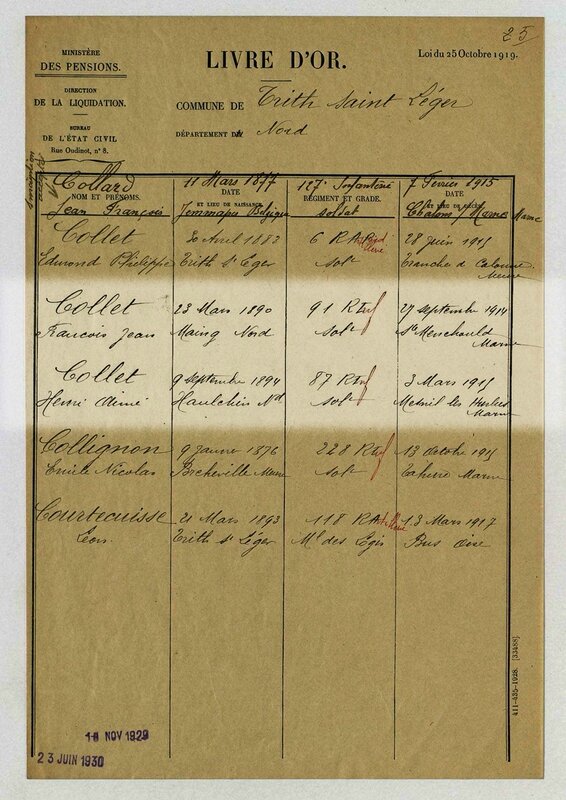 25
MINISTÈRE
DES PENSIONS.
DIRECTION
DE LA LIQUIDATION.
BUREAU
DE L'ÉTAT CIVIL
Rue Oudinot, n° 8.
LIVRE D'OR.
Loi du 25 Octobre 1919.
COMMUNE DE Trith Saint Léger
DÉPARTEMENT DU Nord
Collard 11 Mars 1877 127e Infanterie 7 Février 1915
NOM ET PRÉNOMS. DATE ET LIEU DE NAISSANCE. RÉGIMENT ET GRADE. DATE ET LIEU DE DÉCÈS.
Jean François Jemmapes Belgique soldat Chalons / Marne Marne
Collet 20 Avril 1883 6 R.A. Pied 28 Juin 1915
Edmond Philippe Trith St Leger solt Tranche de Calonne Meuse
Collet 23 Mars 1890 91 R Inf 27 septembre 1914
Francois Jean Maing Nord solt Ste Menehould Marne
Collet 9 septembre 1894 87 R Inf 3 Mars 1915
Henri Aimé Haulchin Nd solt Mesnil les Hurlus Marne
Collignon 9 Janvier 1876 228 R Inf 13 Octobre 1915
Emile Nicolas solt Tahure Marne
Courtecuisse 21 Mars 1893 118 R Artillerie 13 Mars 1917
Léon Trith St Léger Ml des Logis Bus Oise
18 NOV 1929
23 JUIN 1930
411-435-1928. [33488]